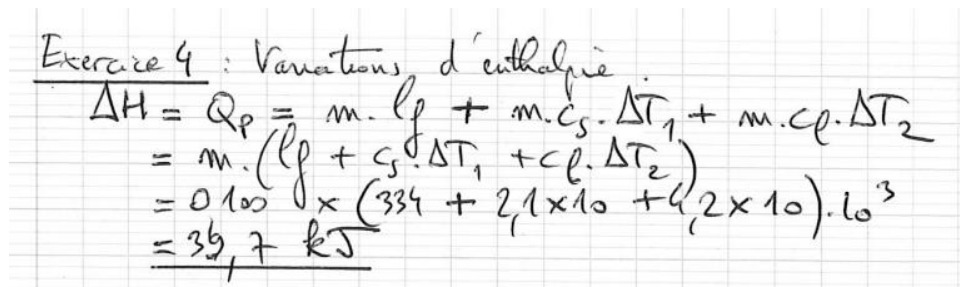 Exercice 4 : Variations d'enthalpie.
ΔH = Qp = m. lf + m.cs.ΔT1 + m.cl.ΔT2
= m.(lf + cs.ΔT1 + cl.ΔT2)
= 0,100 x (334 + 2,1x10 + 4,2x10).10³
= 39,7 kJ